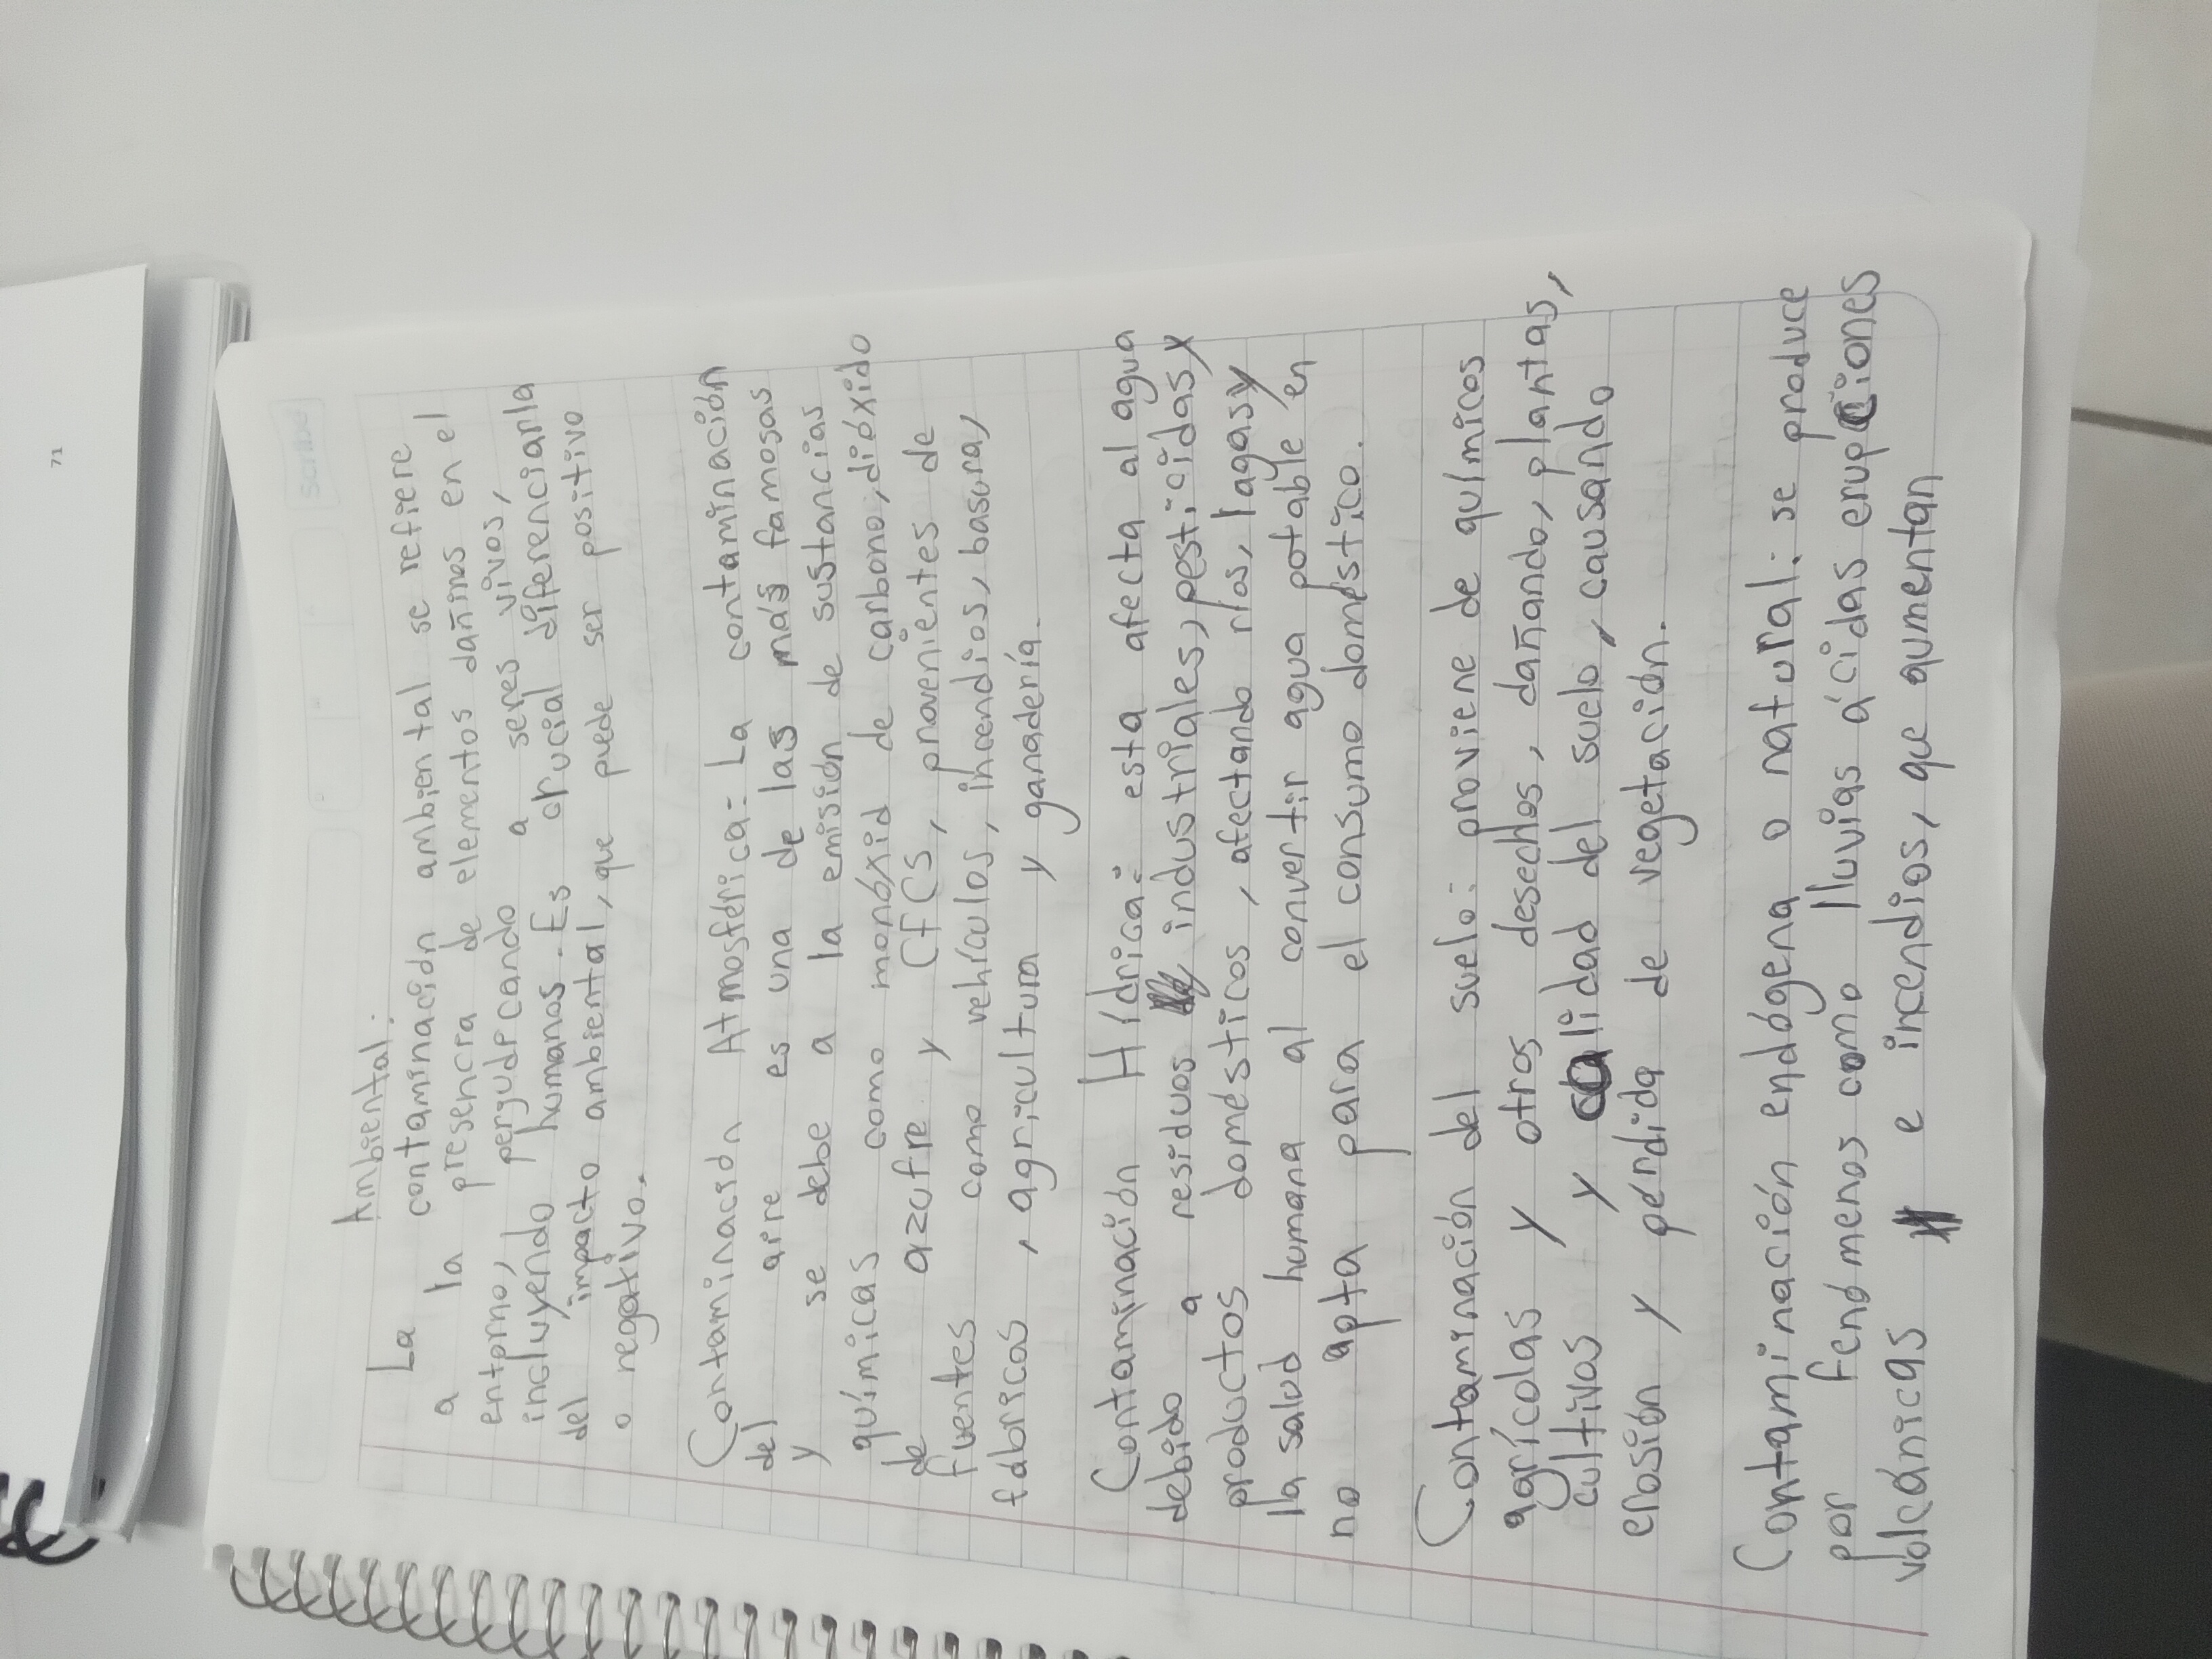 71
Scribe
Ambiental:
La contaminación ambiental se refiere
a la presencia de elementos dañinos en el
entorno, perjudicando a seres vivos,
incluyendo humanos. Es crucial diferenciarla
del impacto ambiental, que puede ser positivo
o negativo.
Contaminación Atmosférica: La contaminación
del aire es una de las más famosas
y se debe a la emisión de sustancias
químicas como monóxid de carbono, dióxido
de azufre y CFCS, provenientes de
fuentes como vehículos, incendios, basura,
fábricas, agricultura y ganadería.
Contaminación Hídrica: esta afecta al agua
debido a residuos industriales, pesticidas y
productos domésticos, afectando ríos, lagas y
la salud humana al convertir agua potable en
no apta para el consumo doméstico.
Contaminación del suelo: proviene de químicos
agrícolas y otros desechos, dañando, plantas,
cultivos y calidad del suelo, causando
erosión y pérdida de vegetación.
Contaminación endógena o natural: se produce
por fenómenos como lluvias ácidas erupciones
volcánicas e incendios, que aumentan